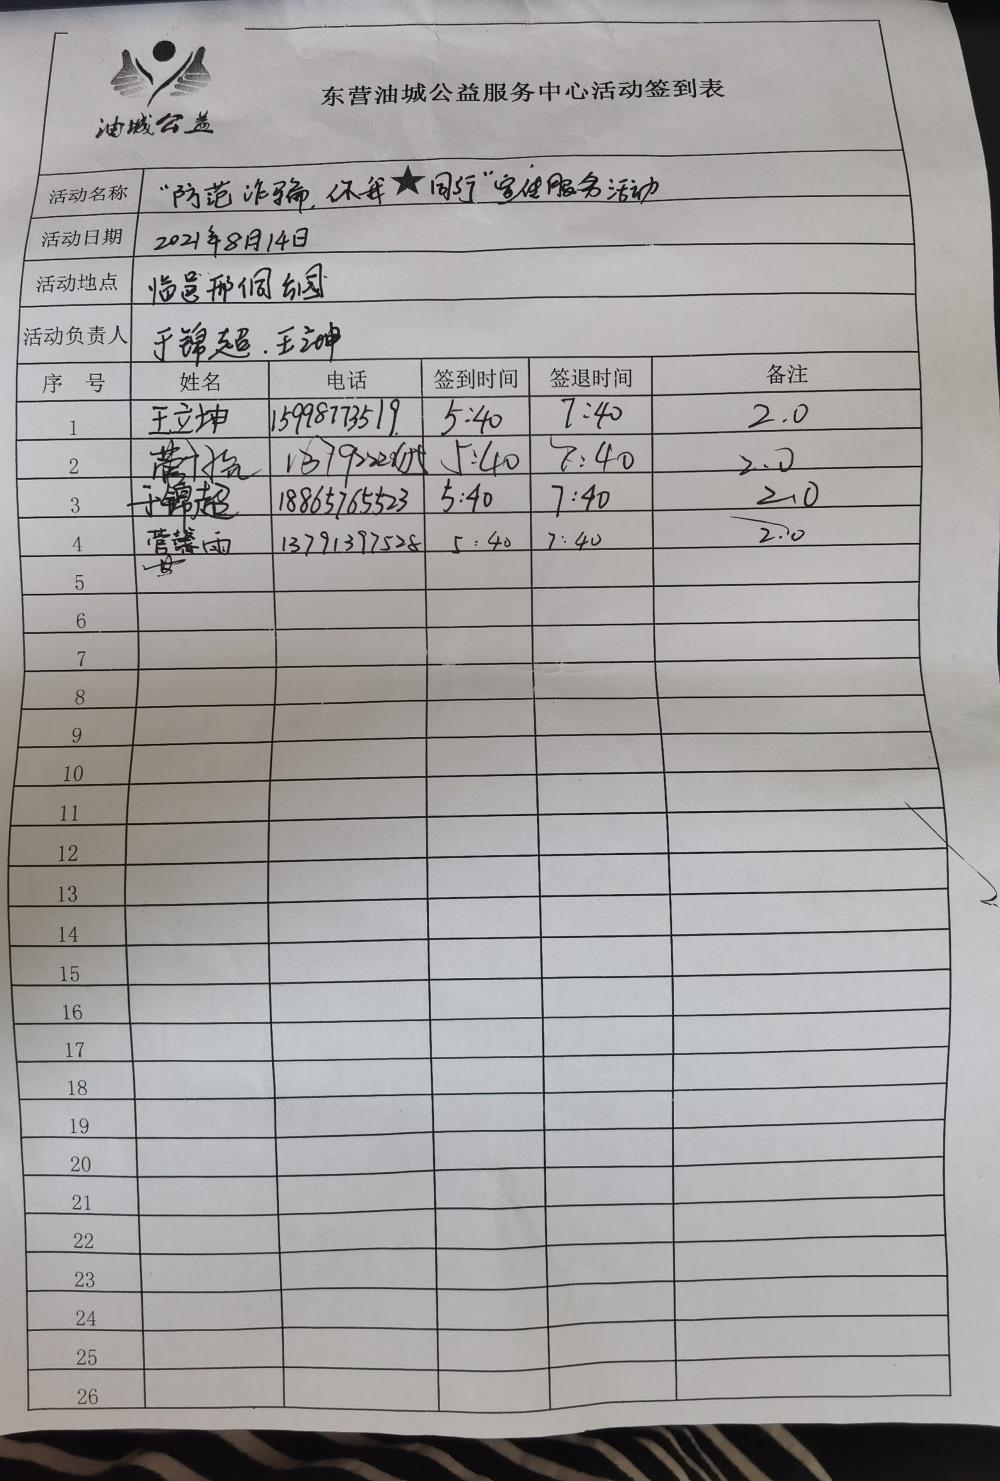 油城公益
东营油城公益服务中心活动签到表
活动名称 "防范诈骗,你我★同行"宣传服务活动
活动日期 2021年8月14日
活动地点 临邑邢侗公园
活动负责人 于锦超.王立坤
序号 姓名 电话 签到时间 签退时间 备注
1 王立坤 15998773519 5:40 7:40 2.0
2 5:40 7:40 2.0
3 于锦超 18865765523 5:40 7:40 2.0
4 菅馨雨 13791397528 5:40 7:40 2.0
5
6
7
8
9
10
11
12
13
14
15
16
17
18
19
20
21
22
23
24
25
26